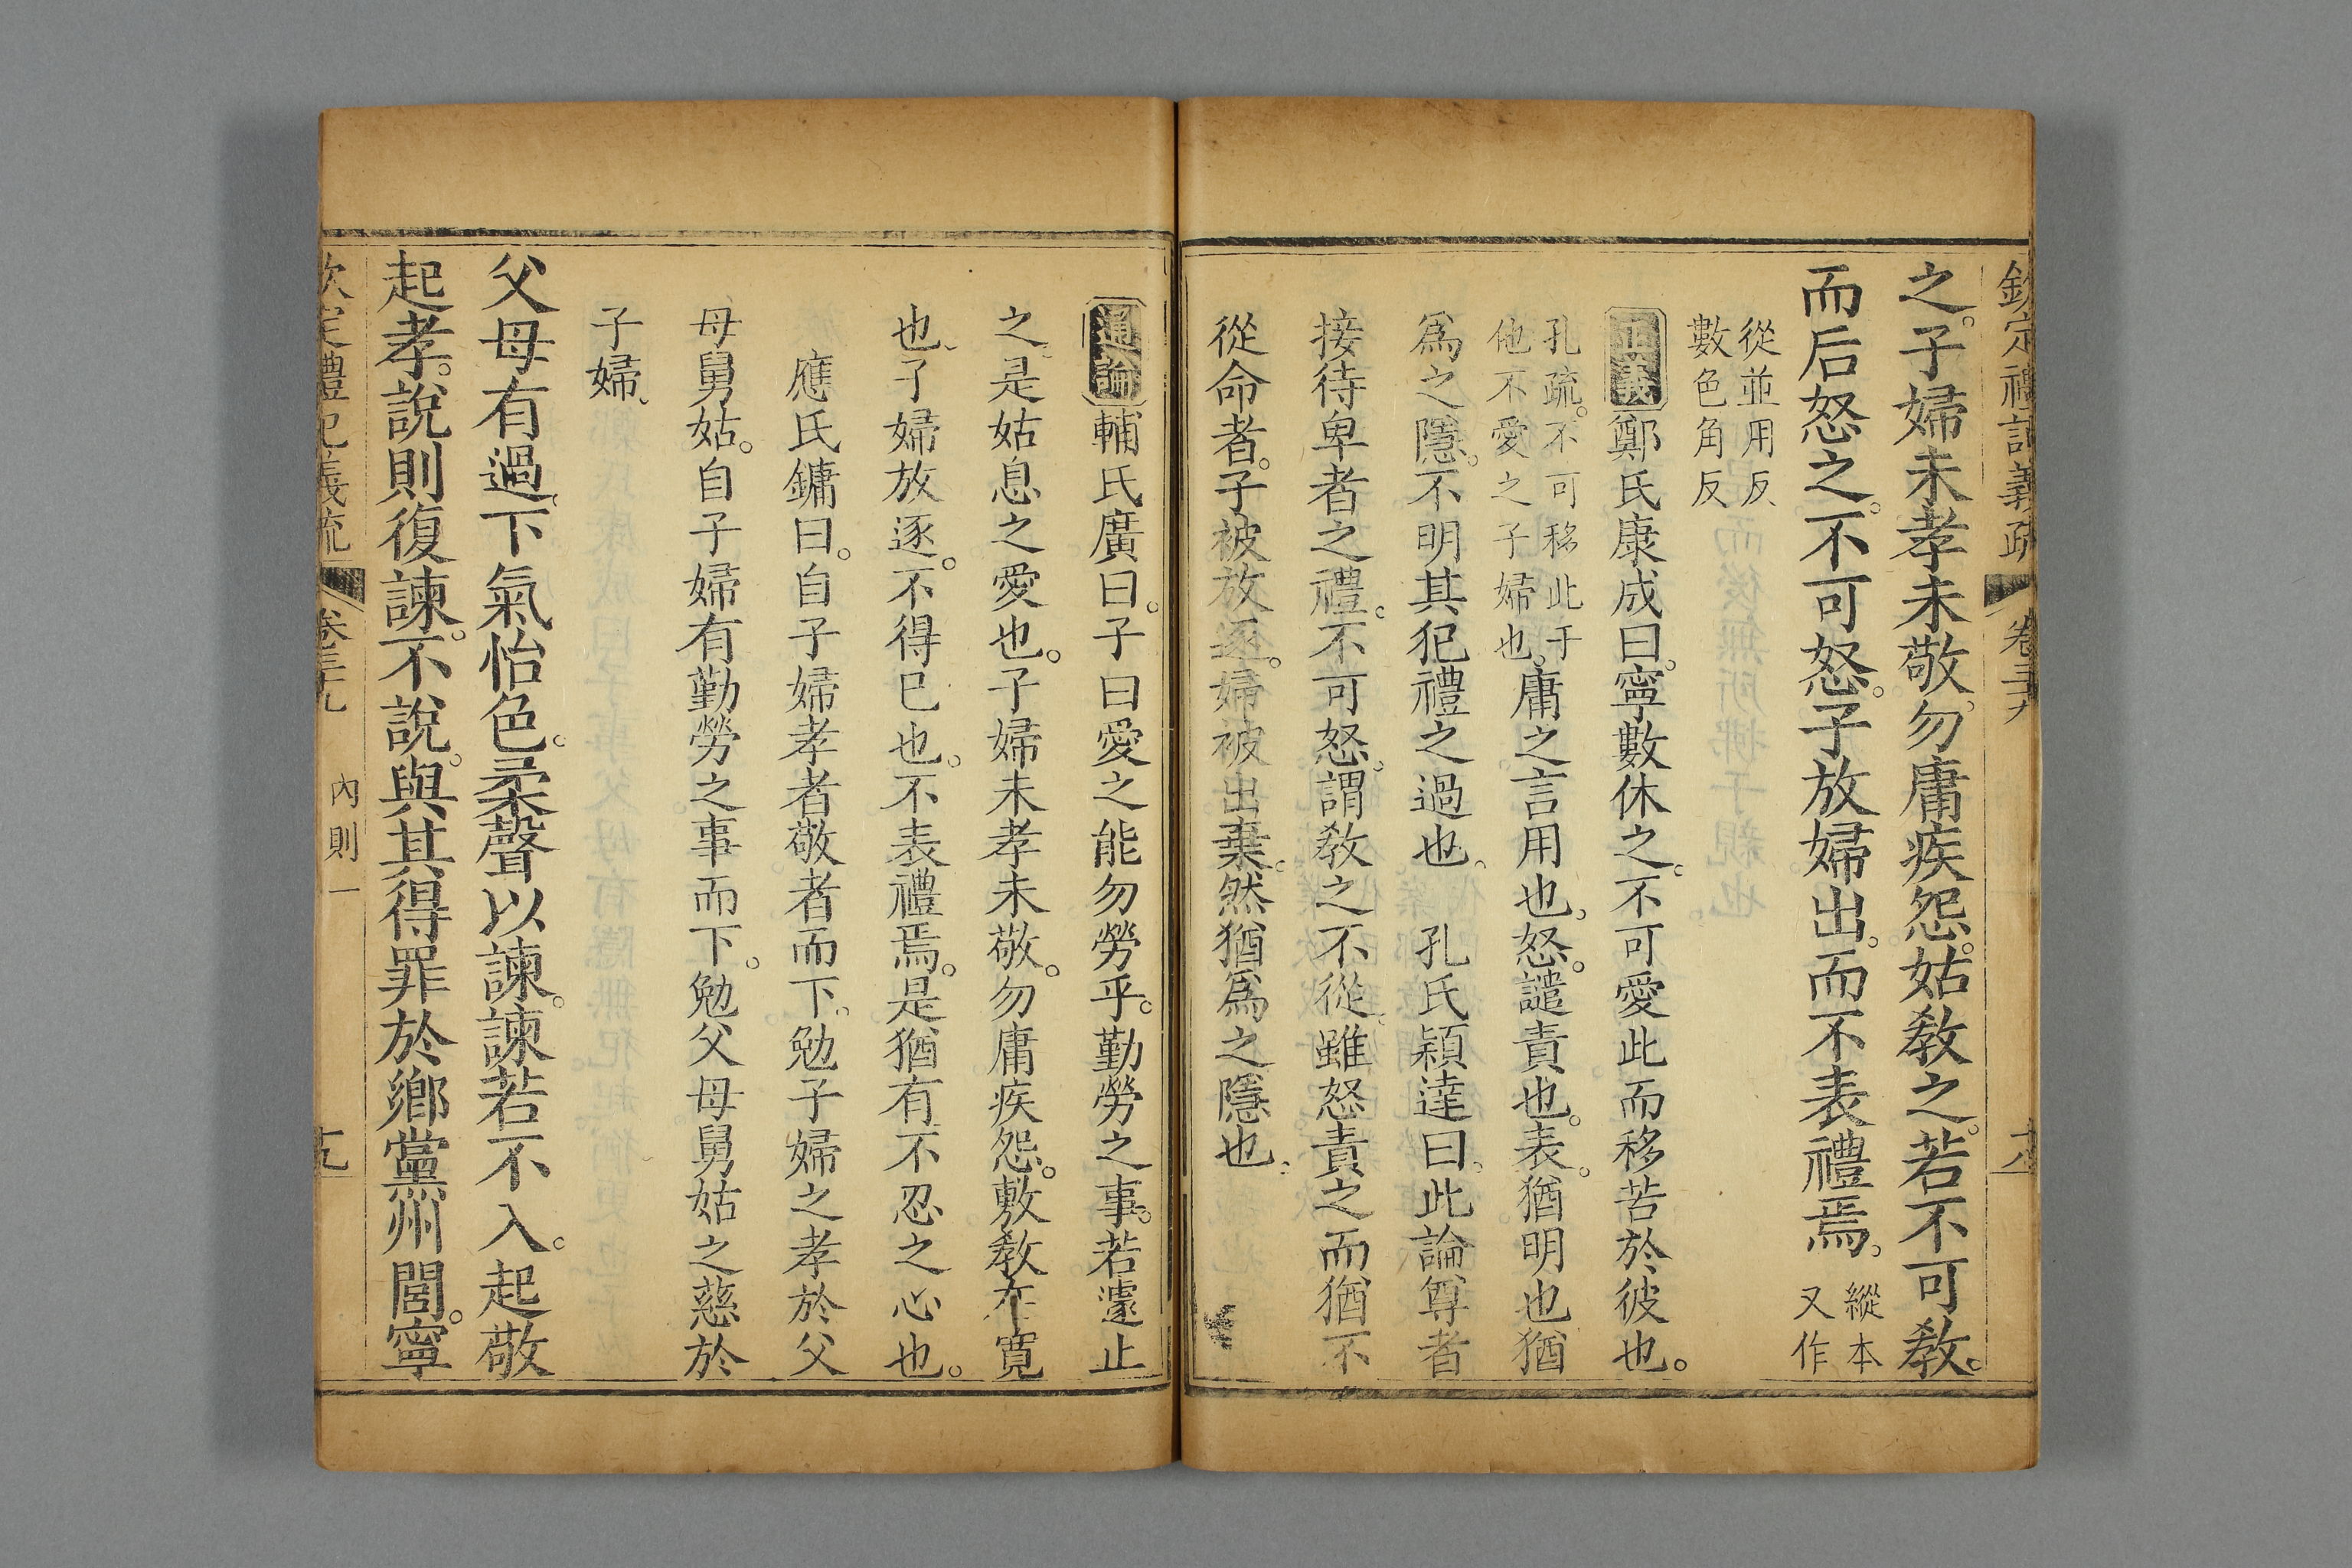 欽定禮記義疏 卷三十九 十八
之。子婦未孝未敬、勿庸疾怨。姑教之。若不可教。
而后怒之。不可怒。子放婦出。而不表禮焉。縱本
又作
從並用反
數色角反
正義鄭氏康成曰。寧數休之。不可愛此而移苦於彼也。
孔疏。不可移此于
他不愛之子婦也。庸之言用也。怒。譴責也。表。猶明也猶
爲之隱。不明其犯禮之過也。 孔氏穎達曰。此論尊者
接待卑者之禮。不可怒。謂教之不從。雖怒責之而猶不
從命者。子被放逐。婦被出棄。然猶爲之隱也。
通論輔氏廣曰。子曰愛之能勿勞乎。勤勞之事。若遽止
之。是姑息之愛也。子婦未孝未敬。勿庸疾怨。敷教在寬
也。子婦放逐。不得已也。不表禮焉。是猶有不忍之心也。
應氏鏞曰。自子婦孝者敬者而下。勉子婦之孝於父
母舅姑。自子婦有勤勞之事而下。勉父母舅姑之慈於
子婦。
父母有過。下氣怡色。柔聲以諫。諫若不入。起敬
起孝。說則復諫。不說。與其得罪於鄉黨州閭。寧
欽定禮記義疏 卷三十九 內則一 十九